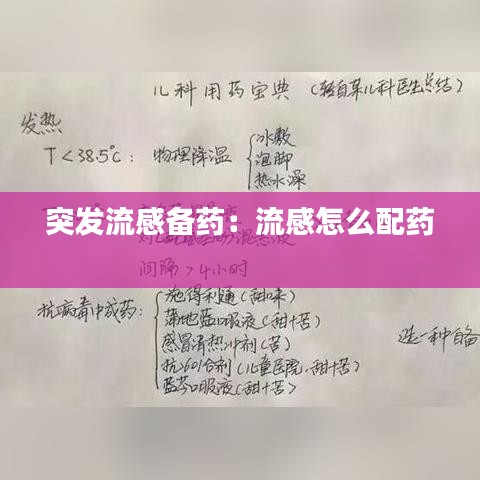 儿科用药宝典(转自某儿科医生总结)
发热
T<38.5℃: 物理降温
冰敷
泡脚
热水澡
突发流感备药:流感怎么配药
间隔>4小时
抗病毒中成药:
施得利通(甜味)
蒲地蓝口服液(甜+苦)
感冒清热冲剂(苦)
抗601合剂(儿童医院,甜+苦)
蓝芩口服液(甜+苦)
选一种自备